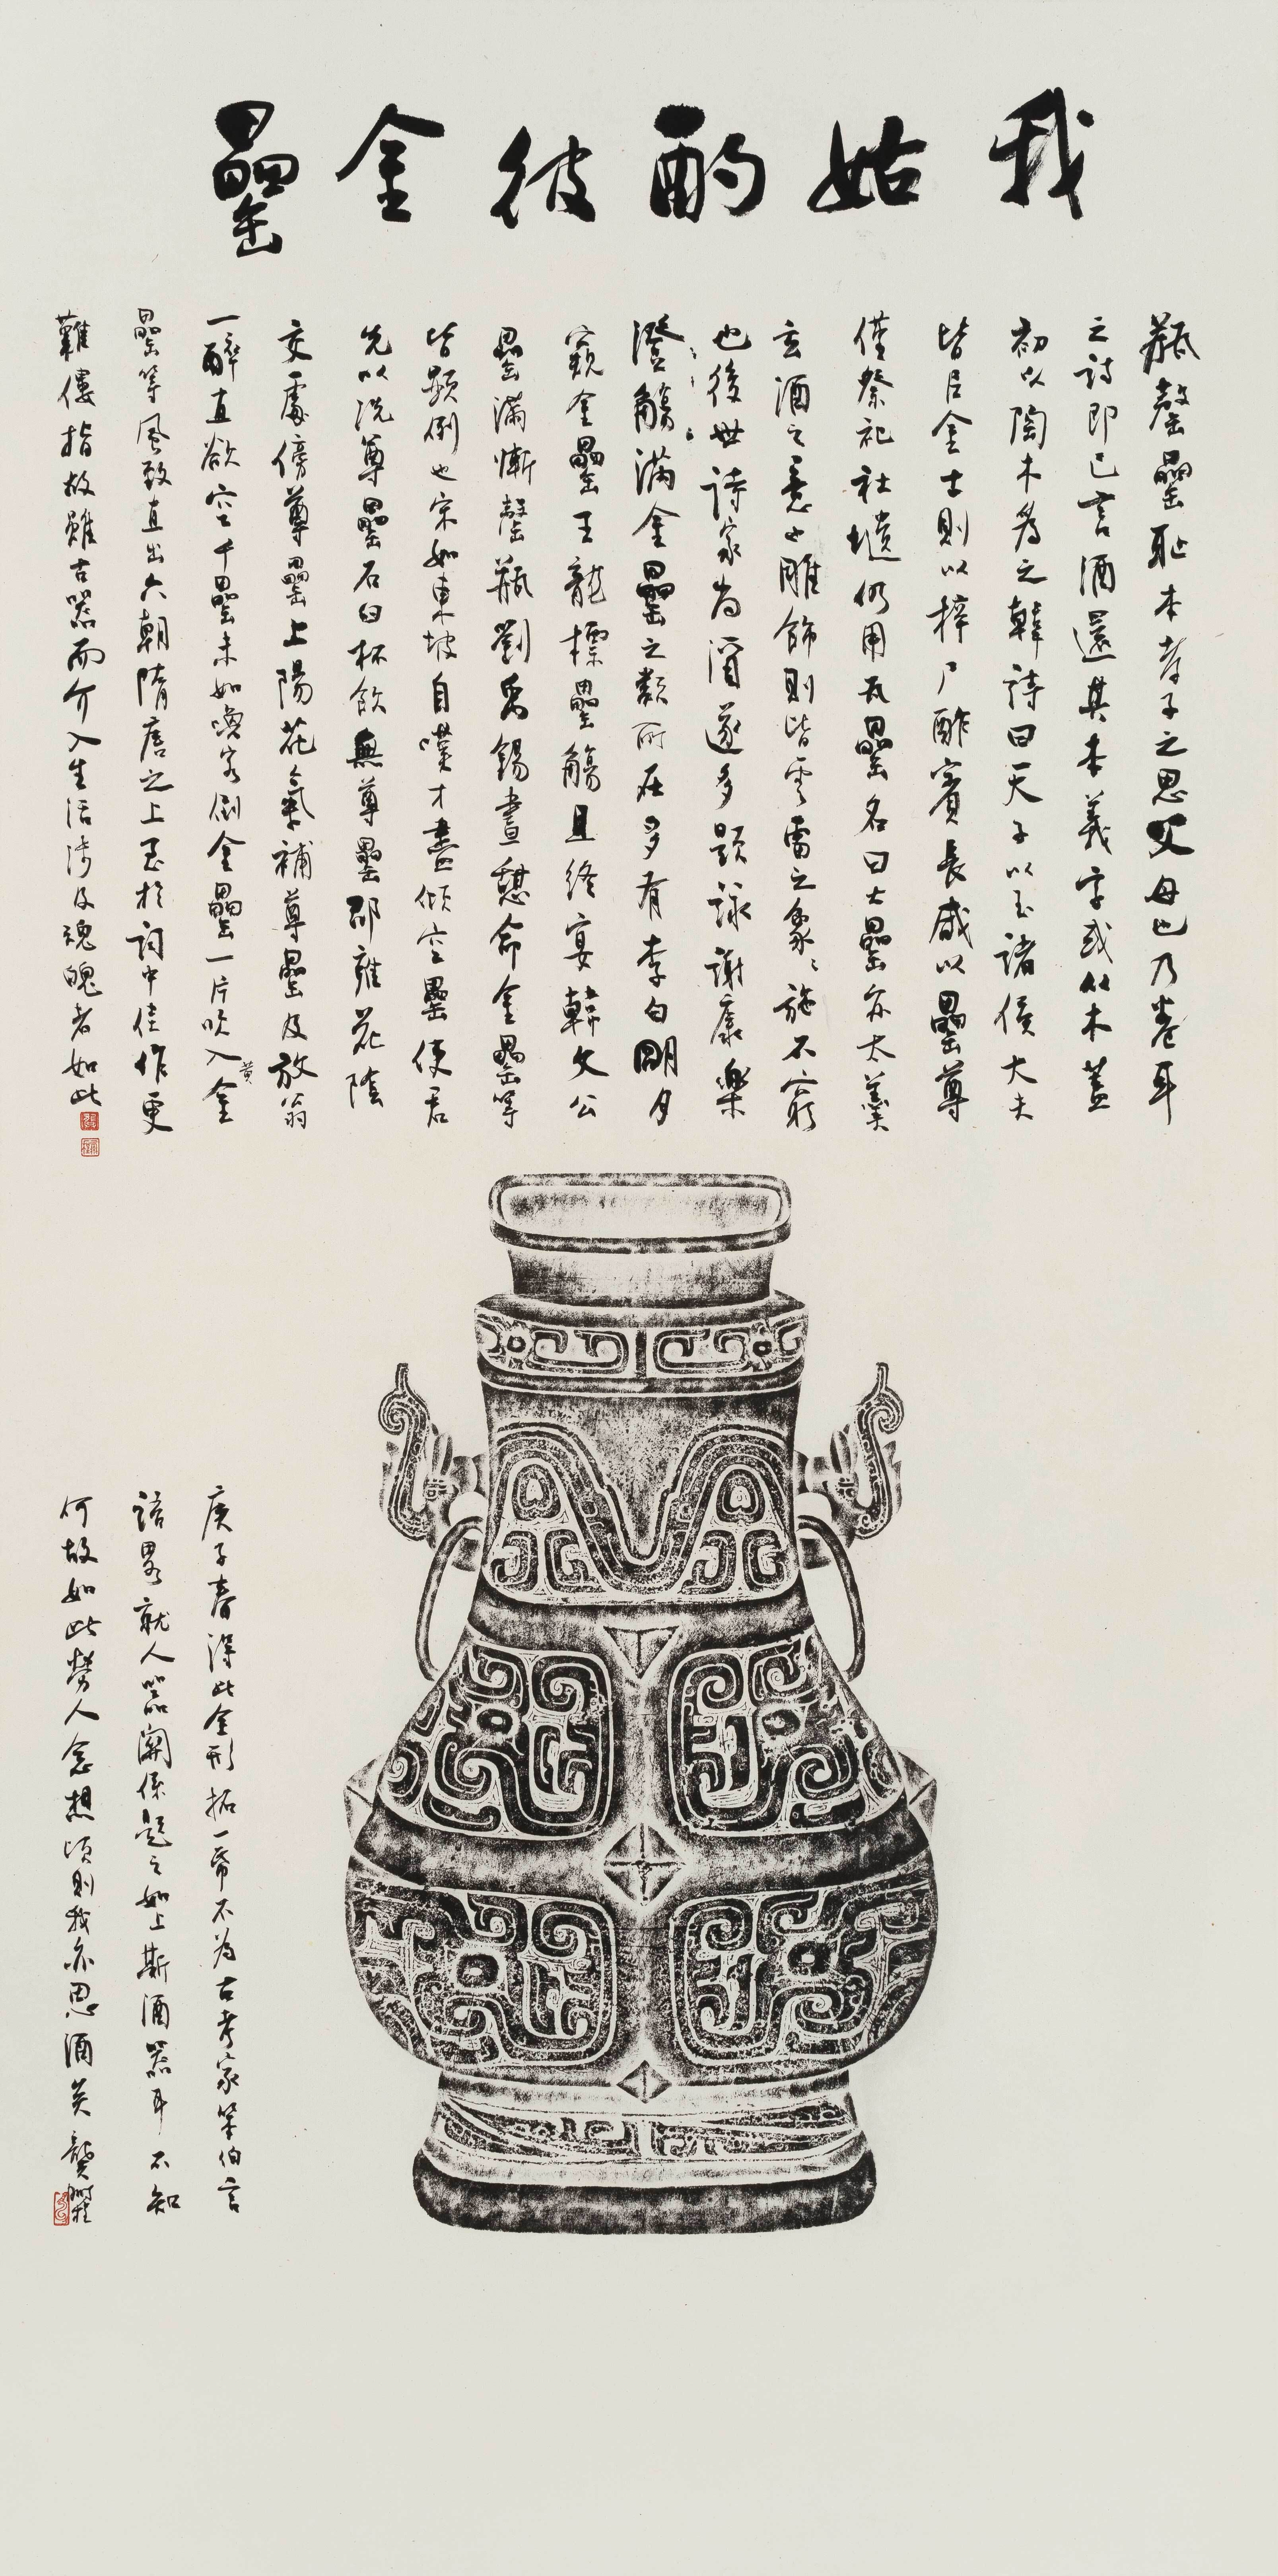 我姑酌彼金罍
瓶罄罍恥本孝子之思父母也乃卷耳
之詩即已言酒還其本義字或从木蓋
初以陶木為之韓詩曰天子以玉諸侯大夫
皆以金士則以梓尸酢賓長咸以罍尊
僅祭祀社壝仍用瓦罍名曰大罍亦太羹
玄酒之意也雕飾則皆雲雷之象象施不窮
也後世詩家為酒遂多題詠謝康樂
澄觴滿金罍之類所在多有李白明月
窺金罍王龍標罍觴且終宴韓文公
罍滿慚罄瓶劉禹錫晝憩命金罍等
皆顯例也宋如東坡自嘆才盡傾空罍使君
先以洗尊罍石臼杯飲無尊罍邵雍花陰
交處傍尊罍上陽花氣補尊罍及放翁
一醉直欲空千罍未如喚客倒金罍一片吹入黃金
罍等風致直出六朝隋唐之上至於詞中佳作更
難僂指故雖古器而介入生活涉及魂魄者如此
庚子春得此全形拓一帋不為古考家笨伯言
語畧就人器關係題之如上斯酒器耳不知
何故如此勞人念想頃則我亦思酒矣龔鵬程